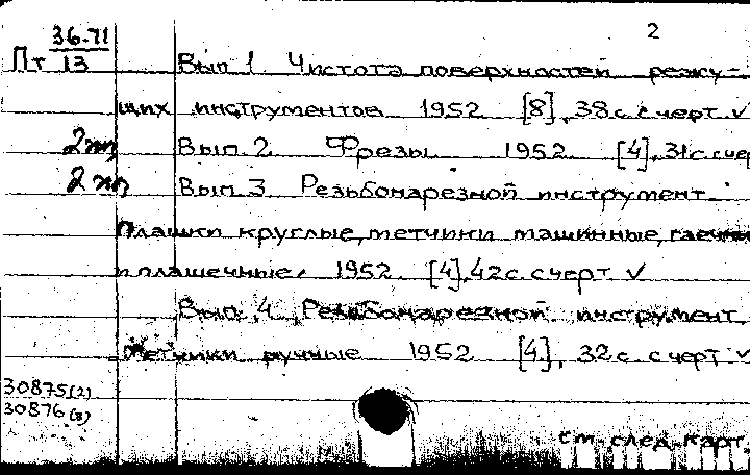 2
36-71
Пт 13
Вып 1 Чистота поверхностей режу-
щих инструментов 1952 [8], 38с с черт ✓
2 эк Вып. 2 Фрезы 1952 [4], 31с с чер
2 эк Вып. 3 Резьбонарезной инструмент.
Плашки круглые, метчики машинные, гаечные
и плашечные. 1952 [4], 42с. с черт ✓
Вып. 4 Резьбонарезной инструмент
Метчики ручные 1952 [4], 32с. с черт. ✓
30875(2)
30876(3)
См. след. карт.